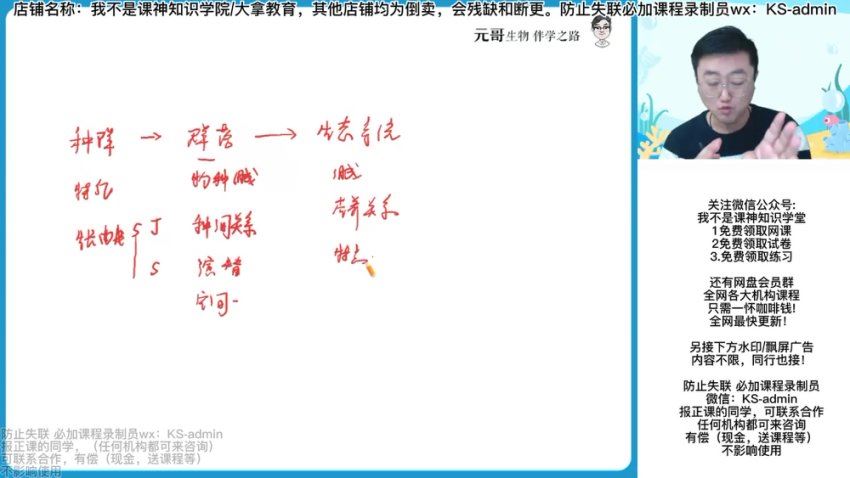 店铺名称：我不是课神知识学院/大拿教育，其他店铺均为倒卖，会残缺和断更。防止失联必加课程录制员wx：KS-admin
元哥生物 伴学之路
种群 → 群落 → 生态系统
特征 物种组成 组成
J 种间关系 营养关系
S 演替 特点
空间
关注微信公众号:
我不是课神知识学堂
1免费领取网课
2免费领取试卷
3.免费领取练习
还有网盘会员群
全网各大机构课程
只需一杯咖啡钱!
全网最快更新！
另接下方水印/飘屏广告
内容不限，同行也接！
防止失联 必加课程录制员
微信：KS-admin
报正课的同学，可联系合作
任何机构都可来咨询
有偿（现金，送课程等）
不影响使用
防止失联 必加课程录制员wx：KS-admin
报正课的同学，（任何机构都可来咨询）
可联系合作，有偿（现金，送课程等）
不影响使用